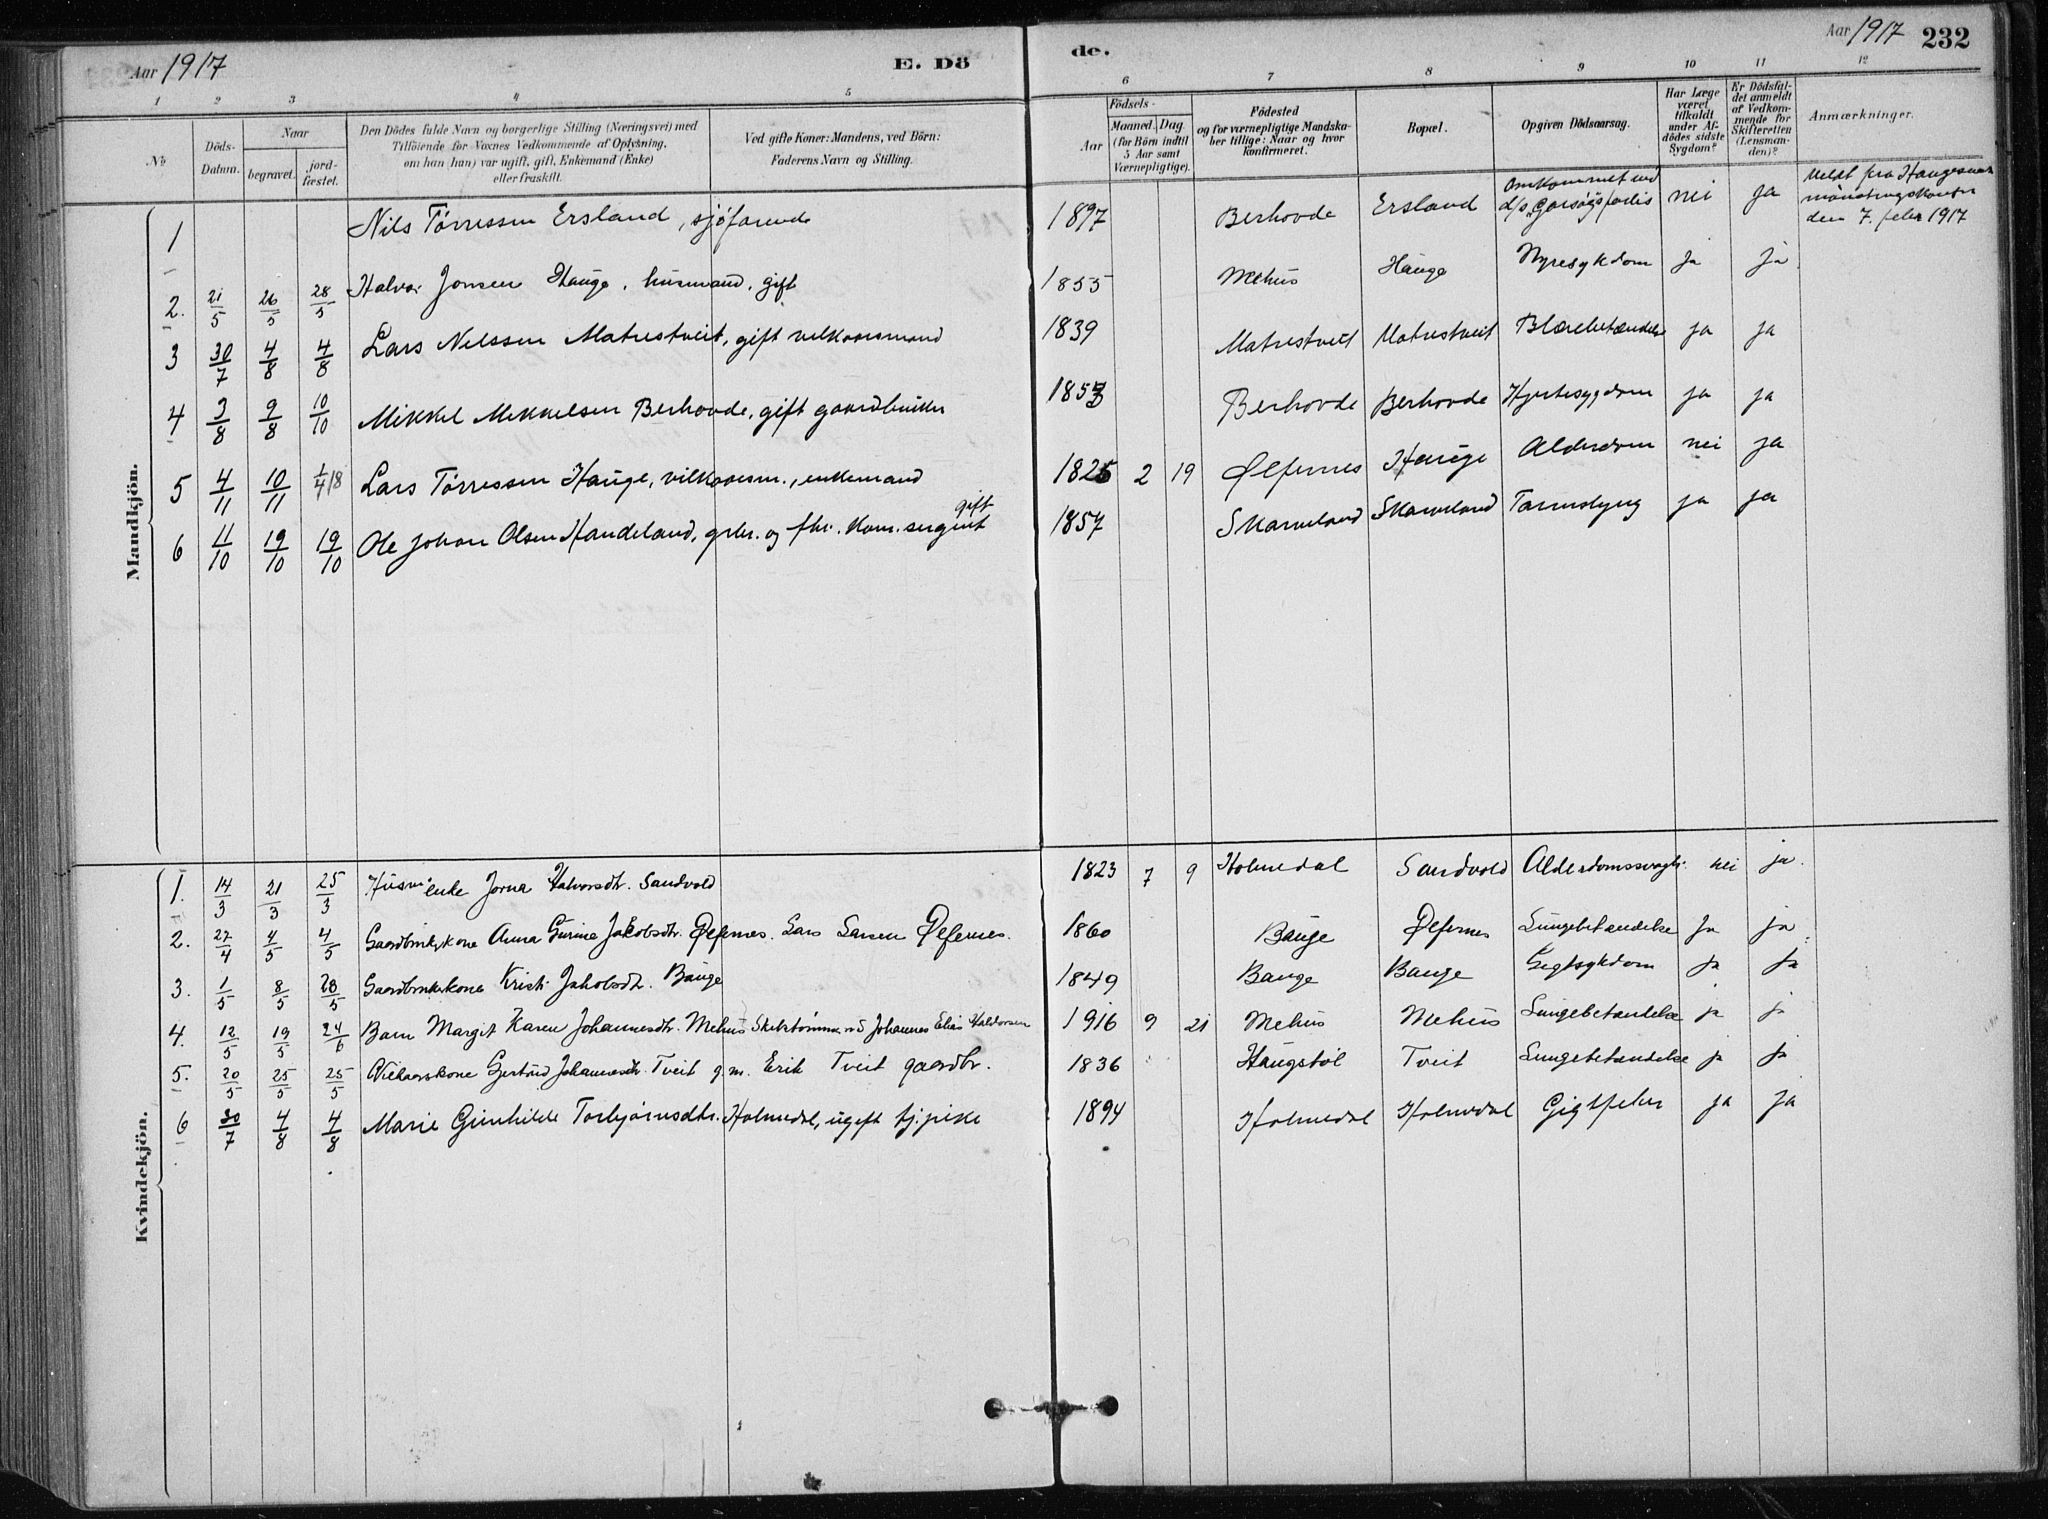 Aar 1917
E. Dö
de.
Aar 1917 232
1 2 3 4 5 6 7 8 9 10 11 12
No
Döds-Datum.
Naar
begravet.
jord-fæstet.
Den Dödes fulde Navn og borgerlige Stilling (Næringsvei) med
Tilföiende for Voxnes Vedkommende af Oplysning,
om han (hun) var ugift, gift, Enkemand (Enke)
eller fraskilt.
Ved gifte Koner: Mandens, ved Börn:
Faderens Navn og Stilling.
Födsels-
Aar
Maaned. Dag.
(for Börn indtil
5 Aar samt
Værnepligtige).
Födested
og for værnepligtige Mandska-
ber tillige: Naar og hvor
konfirmeret.
Bopæl.
Opgiven Dödsaarsag.
Har Læge
været
tilkaldt
under Af-
dödes sidste
Sygdom?
Er Dödsfal-
det anmeldt
af Vedkom-
mende for
Skifteretten
(Lensman-
den)?
Anmærkninger.
Mandkjön.
1 Nils Tørressen Ersland, sjöfarende 1897 Berhovde Ersland Omkommet ved d/s nei ja Meldt fra Haugesunds mönstringskontor den 7. febr 1917
2. 21/5 26/5 28/5 Halvor Jonsen Hauge, husmand, gift 1855 Mehus Hauge Nyresykdom ja ja
3 30/7 4/8 4/8 Lars Nelssen Matrestveit, gift vilkaarsmand 1839 Matrestveit Matrestveit Blærebetændelse ja ja
4 3/8 9/8 10/10 Mikkel Mikkelsen Berhovde, gift gaardbruker 1853 Berhovde Berhovde Hjertesygdom ja ja
5 4/11 10/11 1/4 18 Lars Tørressen Hauge, vilkaarsm., enkemand 1825 2 19 Ølfernes Hauge Alderdom nei ja
6 11/10 19/10 19/10 Ole Johan Olsen Handeland, grbr. og fhv. kom. sergent gift 1857 Skarveland Skarveland Tarmslyng ja ja
Kvindekjön.
1. 14/3 21/3 25/3 Husm. enke Jorna Halvorsdtr. Sandvold 1823 7 9 Holmedal Sandvold Alderdomssvagh. nei ja.
2. 27/4 4/5 4/5 Gaardbrukskone Anna Gurine Jakobsdtr. Ølfernes. Lars Larsen Ølfernes. 1860 Bauge Ølfernes Lungebetændelse ja ja
3. 1/5 8/5 28/5 Gaardbrukskone Kristi Jakobsdt. Bauge 1849 Bauge Bauge Gigtsykdom ja ja
4. 12/5 19/5 24/6 Barn Margit Karen Johannesdtr. Mehus Skibstömmerm. Johannes Elias Haldorsen 1916 9 21 Mehus Mehus Lungebetændelse ja ja
5. 20/5 25/5 25/5 Vilkaarskone Gjertrud Johannesdtr. Tveit g.m. Erik Tveit gaardbr. 1836 Haugstøl Tveit Lungebetændelse ja ja
6 30/7 4/8 4/8 Marie Gunhilde Torbjørnsdtr. Holmedal, ugift tj.pike 1894 Holmedal Holmedal Gigtfeber ja ja